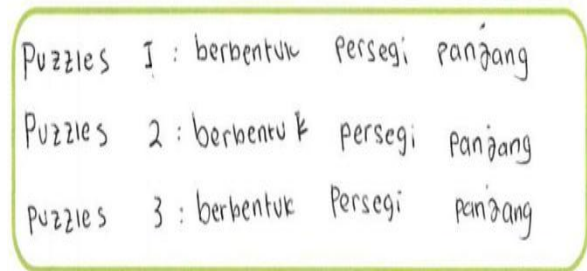 Puzzles I : berbentuk persegi panjang
Puzzles 2 : berbentuk persegi panjang
Puzzles 3 : berbentuk Persegi panjang